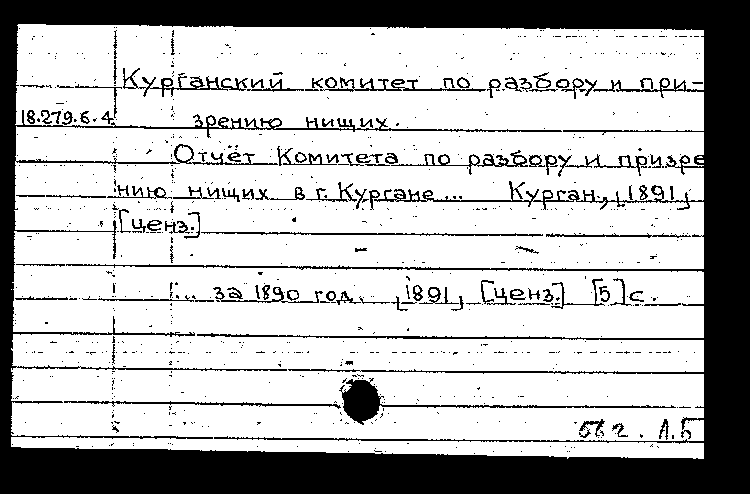 Курганский комитет по разбору и при-
18.279.6.4
зрению нищих.
Отчёт Комитета по разбору и призре
нию нищих в г. Кургане... Курган, [1891]
[ценз.]
... за 1890 год. [1891] [ценз.] [5] с.
56 г. Л.Б